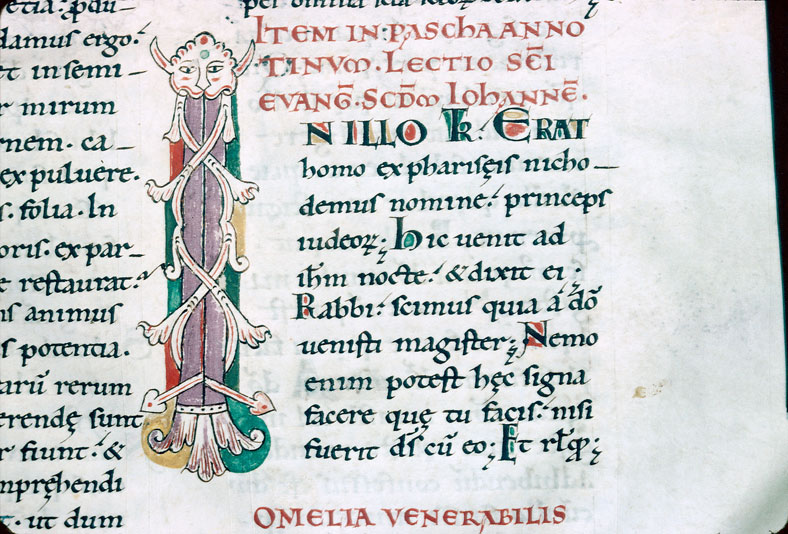 etia: ꝑdu-
damus ergo.
et insemi-
r mirum
rnem. ca-
ex puluere.
s. folia. In
oris. ex par-
e restaurat.
is animus
s potentia.
arũ rerum
erendę sunt
r fiunt. &
mpręhendi
t. ut dum
per omnia
ITEM IN: PASCHA ANNO
TINVM. LECTIO SC̄I
EVANG̃. SCD̄M IOHANNĒ.
IN ILLO TR̄: ERAT
homo ex pharisęis nicho-
demus nomine: princeps
iudeoꝝ; hic uenit ad
ih̄m nocte: & dixit ei;
Rabbi: scimus quia a dō
uenisti magister; Nemo
enim potest hęc signa
facere quę tu facis: nisi
fuerit ds̄ cũ eo; Et rl̄q̄;
OMELIA VENERABILIS